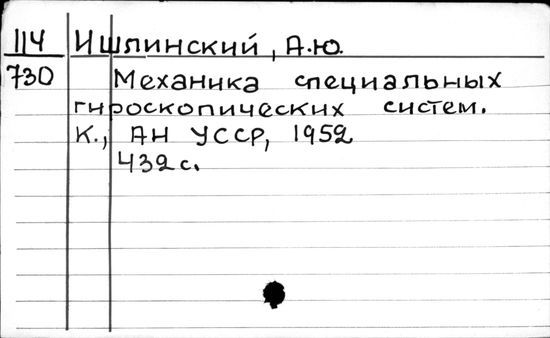 114 Ишлинский, А.Ю.
730 Механика специальных
гироскопических систем.
К., АН УССР, 1952
432 с.